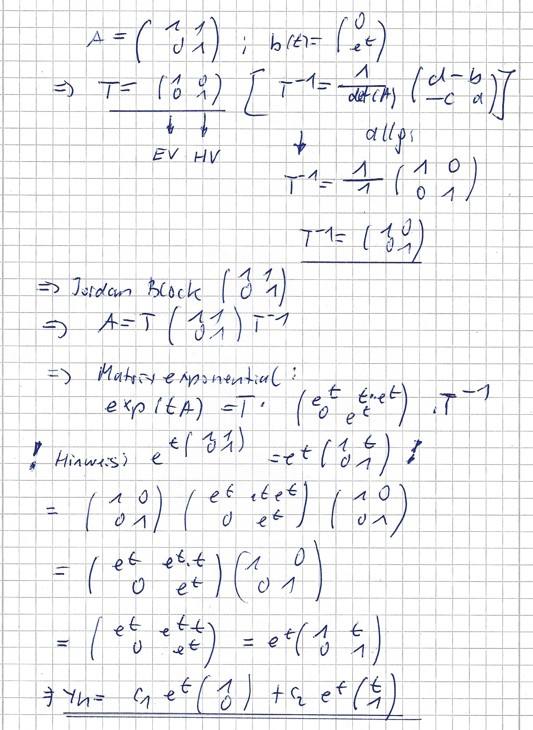 A = ( 1 1 ; 0 1 ) ; b(t) = ( 0 ; e^t )
⇒ T = ( 1 0 ; 0 1 ) [ T^-1 = 1/det(A) ( d -b ; -c a ) ]
EV HV allg.
T^-1 = 1/1 ( 1 0 ; 0 1 )
T^-1 = ( 1 0 ; 0 1 )
⇒ Jordan Block ( 1 1 ; 0 1 )
⇒ A = T ( 1 1 ; 0 1 ) T^-1
⇒ Matrixexponential:
exp(tA) = T · ( e^t t·e^t ; 0 e^t ) · T^-1
! Hinweis: e^t( 1 1 ; 0 1 ) = e^t ( 1 t ; 0 1 ) !
= ( 1 0 ; 0 1 ) ( e^t t e^t ; 0 e^t ) ( 1 0 ; 0 1 )
= ( e^t e^t·t ; 0 e^t ) ( 1 0 ; 0 1 )
= ( e^t e^t t ; 0 e^t ) = e^t ( 1 t ; 0 1 )
⇒ yh = c1 e^t ( 1 ; 0 ) + c2 e^t ( t ; 1 )